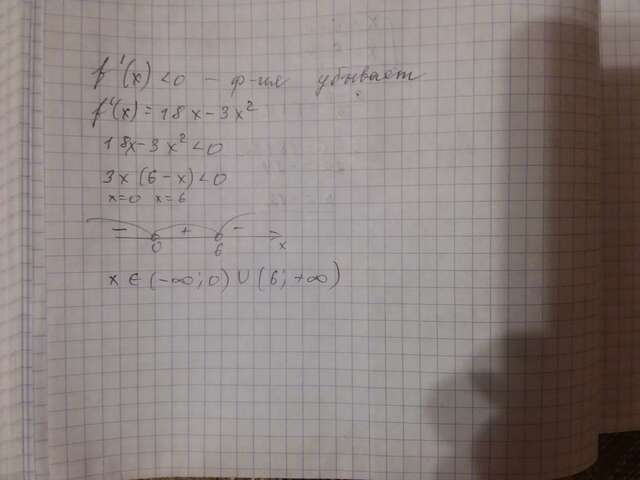 f'(x) <0 - ф-ия убывает
f'(x) = 18x - 3x²
18x - 3x² <0
3x (6 - x) <0
x=0 x=6
- + -
0 6 x
x ∈ (-∞; 0) ∪ (6; +∞)